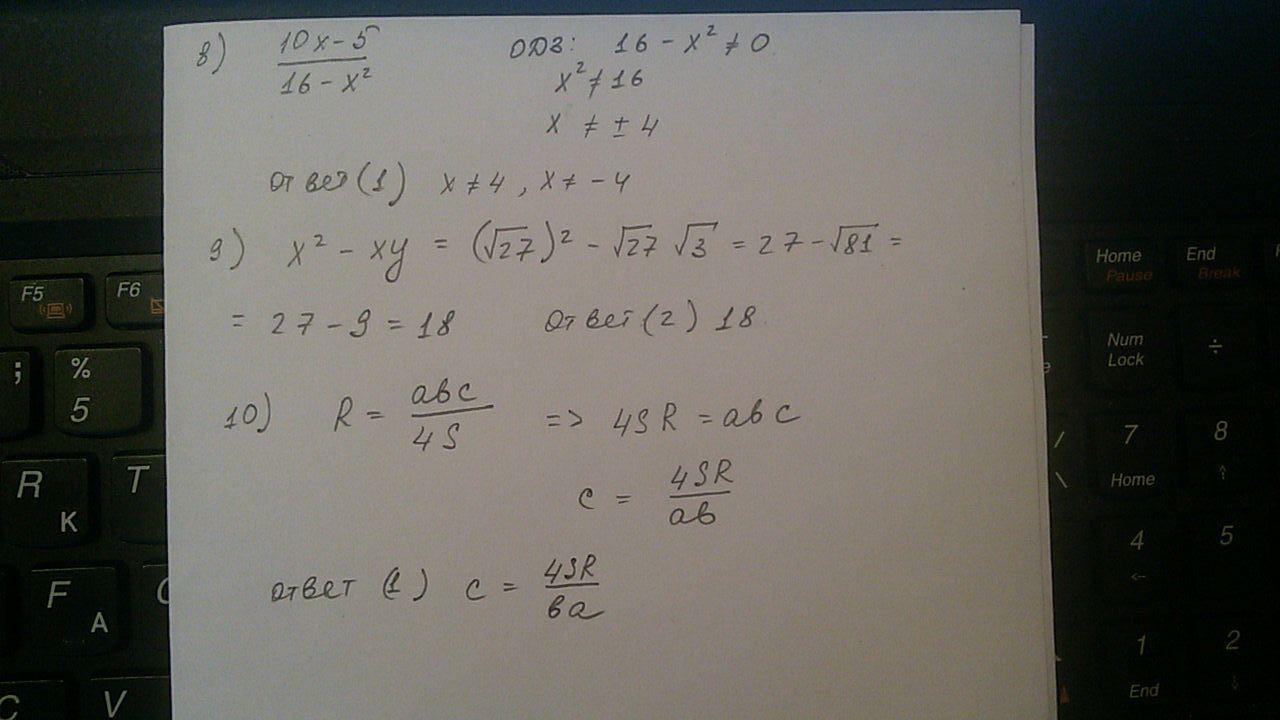 8) 10x-5 / 16-x² ОДЗ: 16-x² ≠ 0
x² ≠ 16
x ≠ ± 4
ответ (1) x ≠ 4, x ≠ -4
9) x² - xy = (√27)² - √27 √3 = 27 - √81 =
= 27 - 9 = 18 ответ (2) 18
10) R = abc / 4S => 4SR = abc
c = 4SR / ab
ответ (1) c = 4SR / ba
F5
F6
;
%
5
R
K
T
F
A
C
C
V
Home
Pause
End
Break
Num
Lock
÷
7
Home
8
4
5
1
End
2